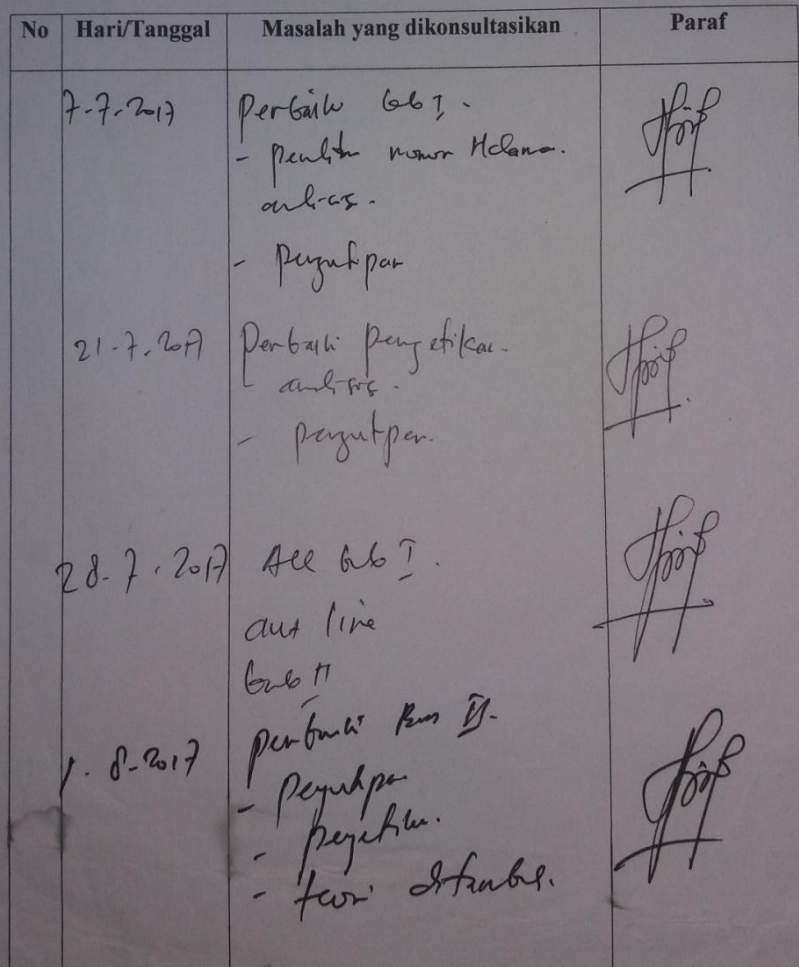 No Hari/Tanggal Masalah yang dikonsultasikan Paraf
7-7-2017 Perbaiki bab I.
- nomor Halaman.
analisis.
- pengutipan
21-7-2017 Perbaiki pengetikan.
- analisis.
- pengutipan.
28-7-2017 Acc bab I.
out line
bab II
1-8-2017 perbaiki Bab II.
- pengutipan
- pengetikan.
- teori ditambah.